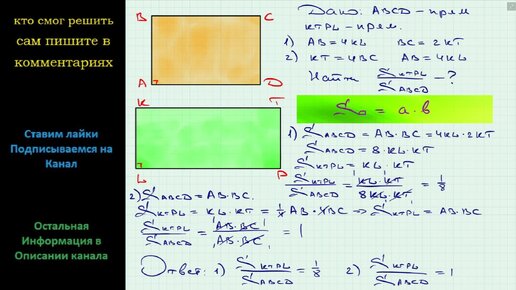 кто смог решить
сам пишите в
комментариях
Ставим лайки
Подписываемся на
Канал
Остальная
Информация в
Описании канала
B C
A D
K T
L P
Дано: ABCD – прям
KTPL – прям.
1) AB = 4KL BC = 2KT
2) KT = 4BC AB = 4KL
Найти S KTPL / S ABCD – ?
S▭ = a·b
1) S ABCD = AB·BC = 4KL·2KT
S ABCD = 8·KL·KT
S KTPL = KL·KT
S KTPL / S ABCD = KL·KT / 8KL·KT = 1/8
2) S ABCD = AB·BC
S KTPL = KL·KT = 1/4 AB·4BC ⇒ S KTPL = AB·BC
S KTPL / S ABCD = AB·BC / AB·BC = 1
Ответ: 1) S KTPL / S ABCD = 1/8 2) S KTPL / S ABCD = 1